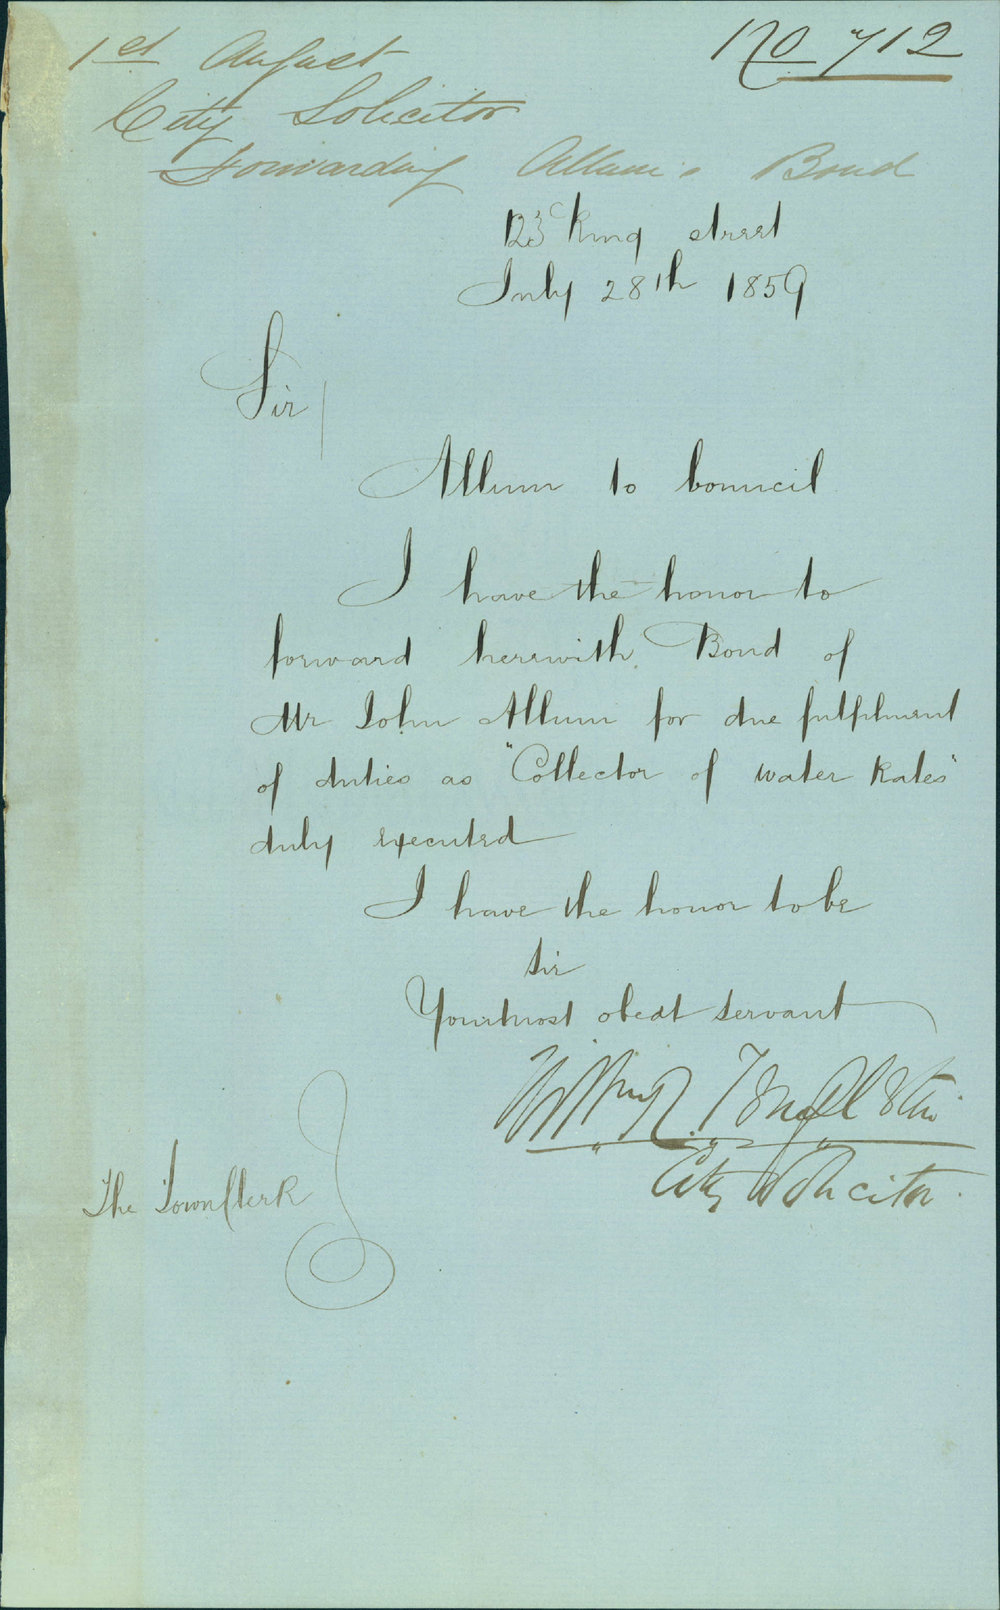 No 712
1st August
City Solicitor
Forwarding Allum's Bond
123 King street
July 28th 1859
Sir
Allum to Council
I have the honor to
forward herewith Bond of
Mr John Allum for due fulfilment
of duties as "Collector of water Rates"
duly executed
I have the honor to be
Sir
Your most obedt servant
City Solicitor
The Town Clerk